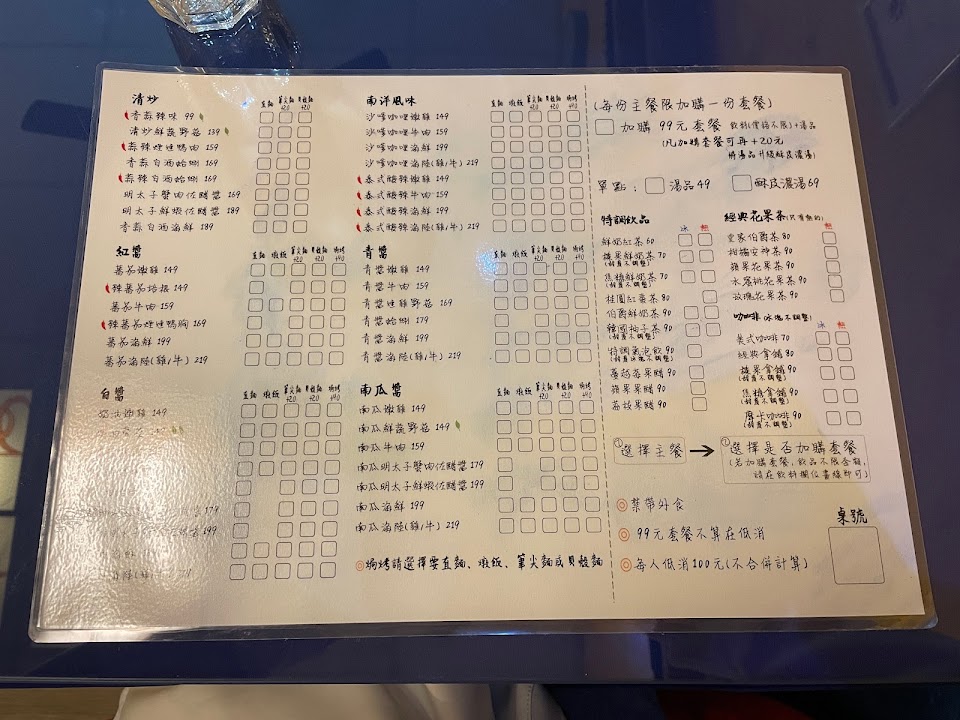 清炒
直麵 燉飯 筆尖麵+20 貝殼麵+20
香蒜辣味 99
清炒鮮蔬野菇 139
蒜辣娃娃鴨肉 159
香蒜白酒蛤蜊 169
蒜辣白酒蛤蜊 169
明太子蟹肉佐醋醬 169
明太子鮮蝦佐醋醬 189
香蒜白酒海鮮 189
紅醬
直麵 燉飯 筆尖麵+20 貝殼麵+20 焗烤+40
蕃茄嫩雞 149
辣蕃茄培根 149
蕃茄牛肉 159
辣蕃茄娃娃鴨胸 169
蕃茄海鮮 199
蕃茄海陸(雞/牛) 219
白醬
直麵 燉飯 筆尖麵+20 貝殼麵+20 焗烤+40
奶油嫩雞 149
179
199
南洋風味
直麵 燉飯 筆尖麵+20 貝殼麵+20 焗烤+40
沙嗲咖哩嫩雞 149
沙嗲咖哩牛肉 159
沙嗲咖哩海鮮 199
沙嗲咖哩海陸(雞/牛) 219
泰式酸辣嫩雞 149
泰式酸辣牛肉 159
泰式酸辣海鮮 199
泰式酸辣海陸(雞/牛) 219
青醬
直麵 燉飯 筆尖麵+20 貝殼麵+20 焗烤+40
青醬嫩雞 149
青醬牛肉 159
青醬娃雞野菇 169
青醬蛤蜊 179
青醬海鮮 199
青醬海陸(雞/牛) 219
南瓜醬
直麵 燉飯 筆尖麵+20 貝殼麵+20 焗烤+40
南瓜嫩雞 149
南瓜鮮蔬野菇 149
南瓜牛肉 159
南瓜明太子蟹肉佐醋醬 179
南瓜明太子鮮蝦佐醋醬 199
南瓜海鮮 199
南瓜海陸(雞/牛) 219
◎焗烤請選擇要直麵、燉飯、筆尖麵或貝殼麵
(每份主餐限加購一份套餐)
加購 99元套餐 飲料(價格不限)+湯品
(凡加購套餐可再+20元
將湯品升級酥皮濃湯)
單點: 湯品 49 酥皮濃湯 69
特調飲品
冰 熱
鮮奶紅茶 60
榛果鮮奶茶 70
(甜度不調整)
焦糖鮮奶茶 70
(甜度不調整)
桂圓紅棗茶 80
伯爵鮮奶茶 90
韓國柚子茶 90
(甜度不調整)
特調氣泡飲 90
(甜度冰塊不調整)
蔓越莓果醋 90
蘋果果醋 90
荔枝果醋 90
經典花果茶(只有熱的)
熱
皇家伯爵茶 80
柑橘安神茶 90
蘋果花果茶 90
水蜜桃花果茶 90
玫瑰花果茶 90
咖啡(冰塊不調整)
冰 熱
美式咖啡 70
經典拿鐵 80
榛果拿鐵 90
(甜度不調整)
焦糖拿鐵 90
(甜度不調整)
摩卡咖啡 90
(甜度不調整)
選擇主餐 → 選擇是否加購套餐
(若加購套餐,飲品不限金額,
請在飲料欄位畫線即可)
◎禁帶外食
◎99元套餐不算在低消
◎每人低消100元(不合併計算)
桌號